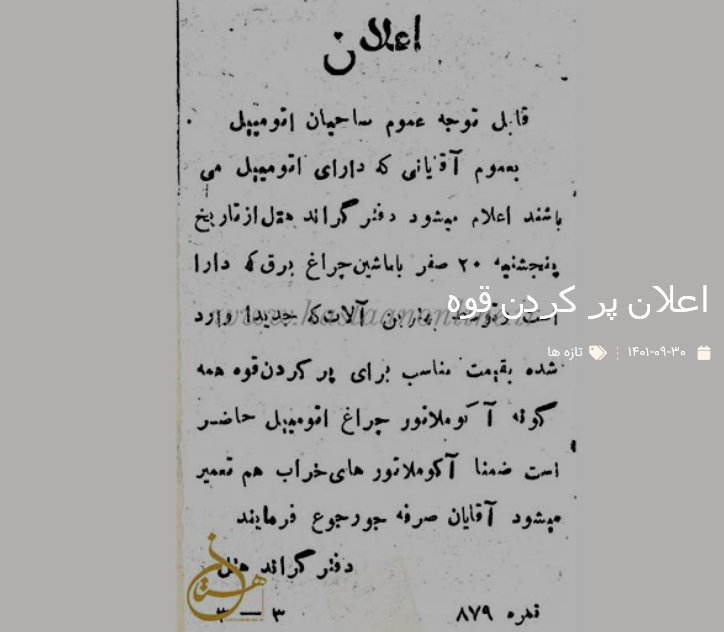 اعلان
قابل توجه عموم صاحبان اتومبیل
بعموم آقایانی که دارای اتومبیل می
باشند اعلام میشود دفتر گراند هتل از تاریخ
پنجشنبه ۲۰ صفر باماشین چراغ برق که دارا
اعلان پر کردن قوه
است وتوسط بهترین آلات که جدیدا وارد
۱۴۰۱-۰۹-۳۰ تازه ها
شده بقیمت مناسب برای پر کردن قوه همه
گونه آکوملاتور چراغ اتومبیل حاضر
است ضمنا آکوملاتور های خراب هم تعمیر
میشود آقایان صرفه جو رجوع فرمایند
دفتر گراند هتل
نمره ۸۷۹ ۳ — ۳